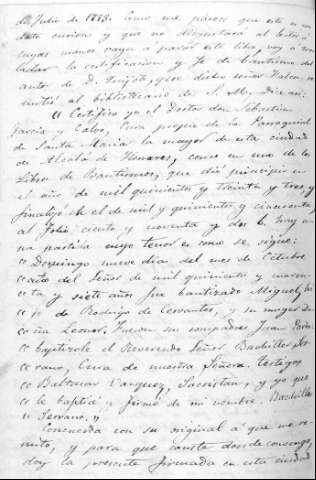 de Julio de 1883. Como me parece que esto es un
dato curioso y que no disgustará al lector á
cuyas manos vaya a parar este libro, voy á tras
ladar la certificacion y fe de bautismo del
autor de D. Quijote, que dicho señor
mitió al bibliotecario de S. M. Dice así:
"Certifico yo el Doctor don Sebastian
García y Calvo, Cura propio de la Parroquial
de Santa María la mayor de esta ciudad
de Alcalá de Henares, como en uno de los
Libros de Bautismos, que dió principio en
el año de mil quinientos y treinta y tres, y
finalizó en el de mil y quinientos y cincuenta,
al folio ciento y noventa y dos b. hay un
na partida cuyo tenor es como se sigue:
"Domingo nueve dias del mes de Octubre
"año del Señor de mil quinientos y cuaren
"ta y siete años fue bautizado Miguel, hi
"jo de Rodrigo de Cervantes, y su muger do
"ña Leonor. Fueron sus compadres Juan Pardo:
"baptizole el Reverendo Señor Bachiller Ser
"rano, Cura de nuestra Señora. Testigos
"Baltasar Vazquez, Sacristán, y yo que
"le baptizé y firmé de mi nombre. Bachiller
"Serrano."
Concuerda con su original á que me re-
mito, y para que conste donde convenga,
doy la presente firmada en esta ciudad